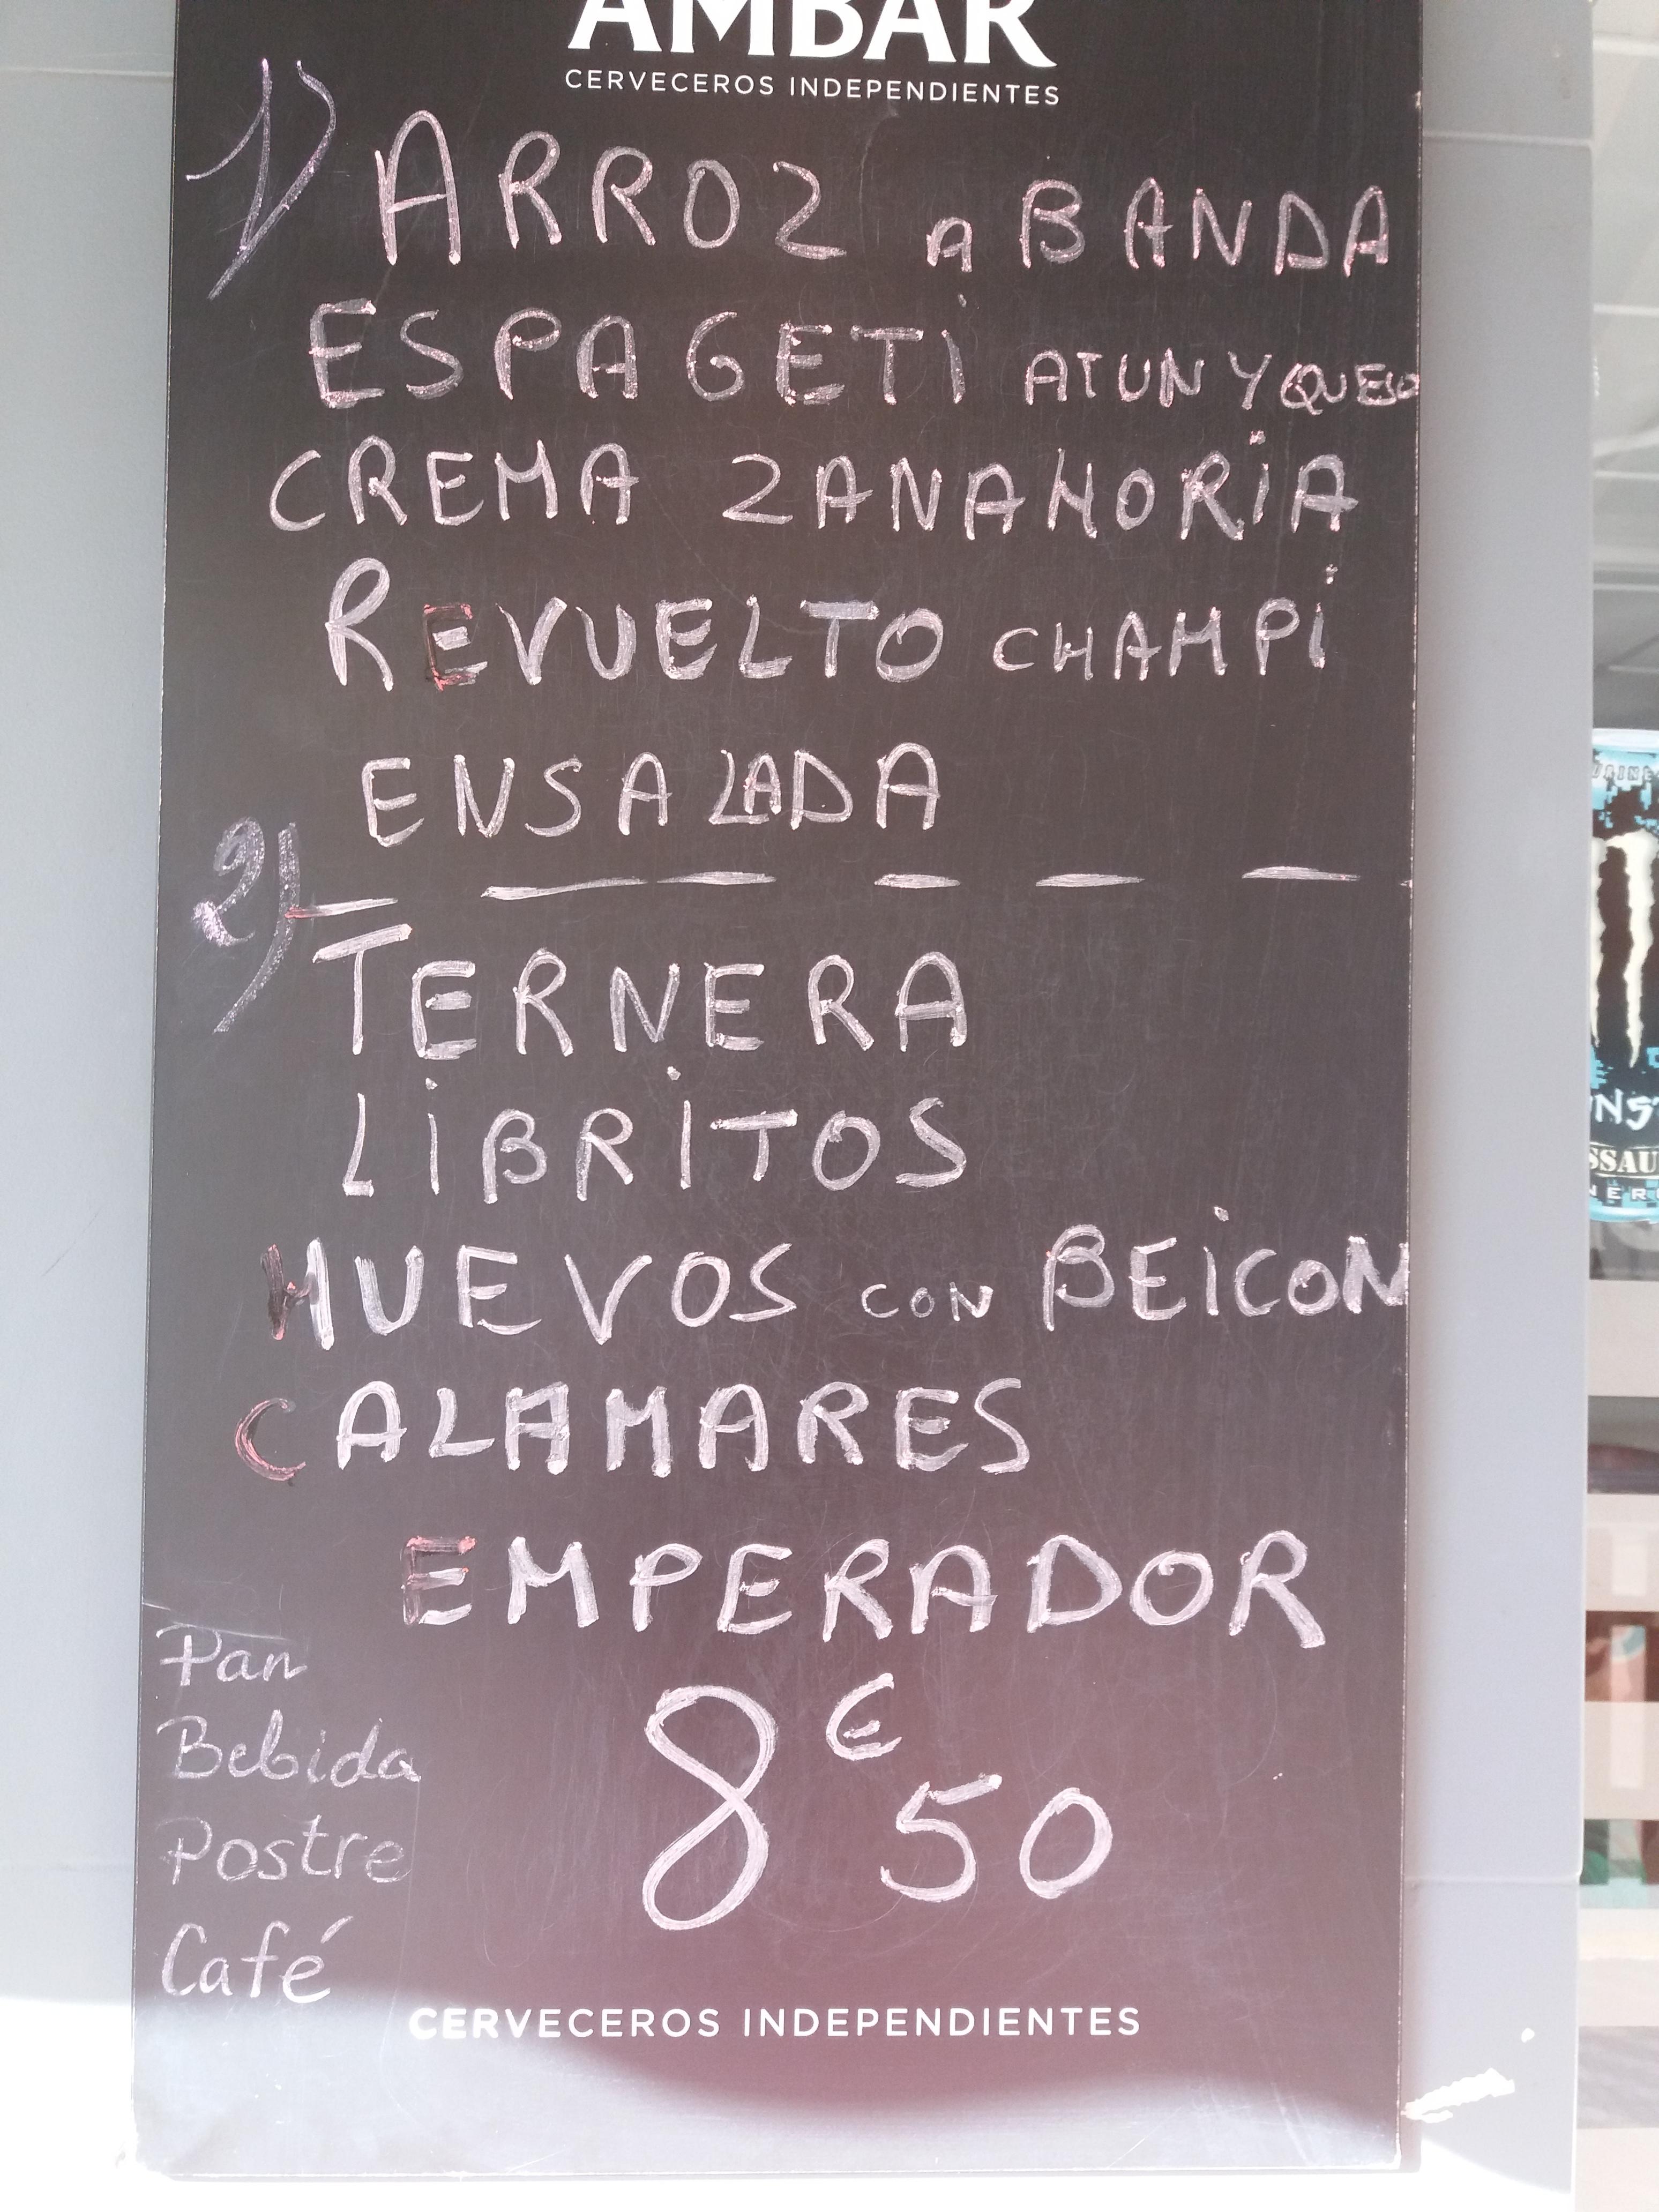 AMBAR
CERVECEROS INDEPENDIENTES
1) ARROZ A BANDA
ESPAGETI ATUN Y QUESO
CREMA ZANAHORIA
REVUELTO CHAMPI
ENSALADA
2)
TERNERA
LIBRITOS
HUEVOS CON BEICON
CALAMARES
EMPERADOR
Pan
Bebida
Postre
Café
8€50
CERVECEROS INDEPENDIENTES